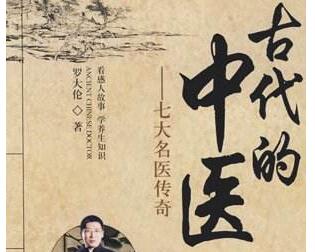 古代的
中医
——七大名医传奇
看感人故事 学养生知识
ANCIENT CHINESE DOCTOR
罗大伦◇著